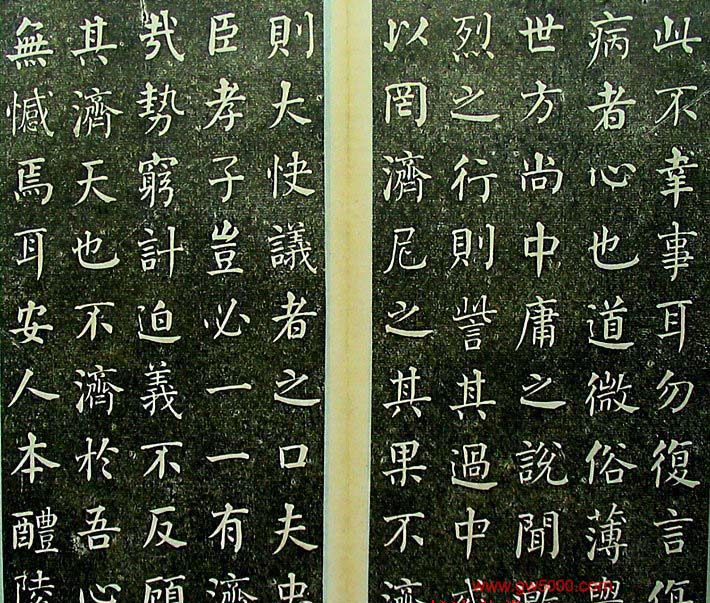 此不幸事耳勿復言傷
病者心也道微俗薄
世方尚中庸之說聞
烈之行則訾其過中或
以罔濟尼之其果不濟
則大快議者之口夫忠
臣孝子豈必一一有濟
哉勢窮計迫義不反顧
其濟天也不濟於吾心
無憾焉耳安人本醴陵
www.gw5000.com